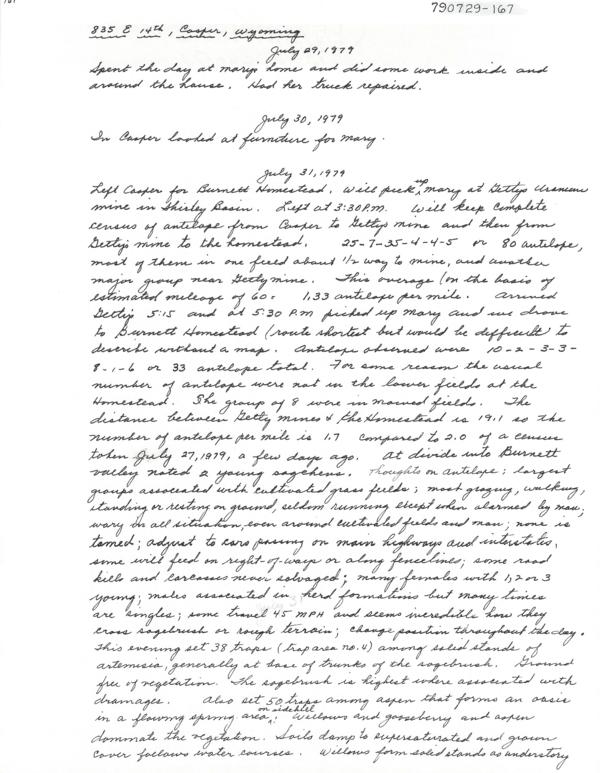 790729-167
835 E 14th, Casper, Wyoming
July 29, 1979
Spent the day at Mary's home and did some work inside and
around the house. Had her truck repaired.
July 30, 1979
In Casper looked at furniture for Mary.
July 31, 1979
Left Casper for Burnett Homestead. Will pick up Mary at Gettys Uranium
mine in Shirley Basin. Left at 3:30 P.M. Will keep complete
census of antelope from Casper to Getty's mine and then from
Getty's mine to the homestead. 25-7-35-4-4-5 or 80 antelope,
most of them in one field about 1/2 way to mine, and another
major group near Getty mine. This average (on the basis of
estimated mileage of 60 = 1.33 antelope per mile. Arrived
Getty's 5:15 and at 5:30 P.M picked up Mary and we drove
to Burnett Homestead (route shortest but would be difficult to
describe without a map. Antelope observed were 10-2-3-3-
8-1-6 or 33 antelope total. For some reason the usual
number of antelope were not in the lower fields at the
Homestead. The group of 8 were in mowed fields. The
distance between Getty mines & the Homestead is 19.1 so the
number of antelope per mile is 1.7 compared to 2.0 of a census
taken July 27, 1979, a few days ago. At divide into Burnett
valley noted 2 young sagehens. Thoughts on antelope; largest
groups associated with cultivated grass fields; most grazing, walking,
standing or resting on ground, seldom running except when alarmed by man;
wary in all situation, even around cultivated fields and man; none is
tamed; adjust to cars passing on main highways and interstates,
some will feed on right-of-ways or along fencelines; some road
kills and carcasses never salvaged; many females with 1, 2 or 3
young; males associated in herd formations but many times
are singles; some travel 45 MPH and seems incredible how they
cross sagebrush or rough terrain; change position throughout the day.
This evening set 38 traps (trap area no. 4) among solid stands of
artemisia, generally at base of trunks of the sagebrush. Ground
free of vegetation. The sagebrush is highest where associated with
drainages. Also set 50 traps among aspen that forms an oasis
in a flowing spring area on sidehill; Willows and gooseberry and aspen
dominate the vegetation. Soils damp to supersaturated and ground
cover follows water courses. Willows form solid stands as understory